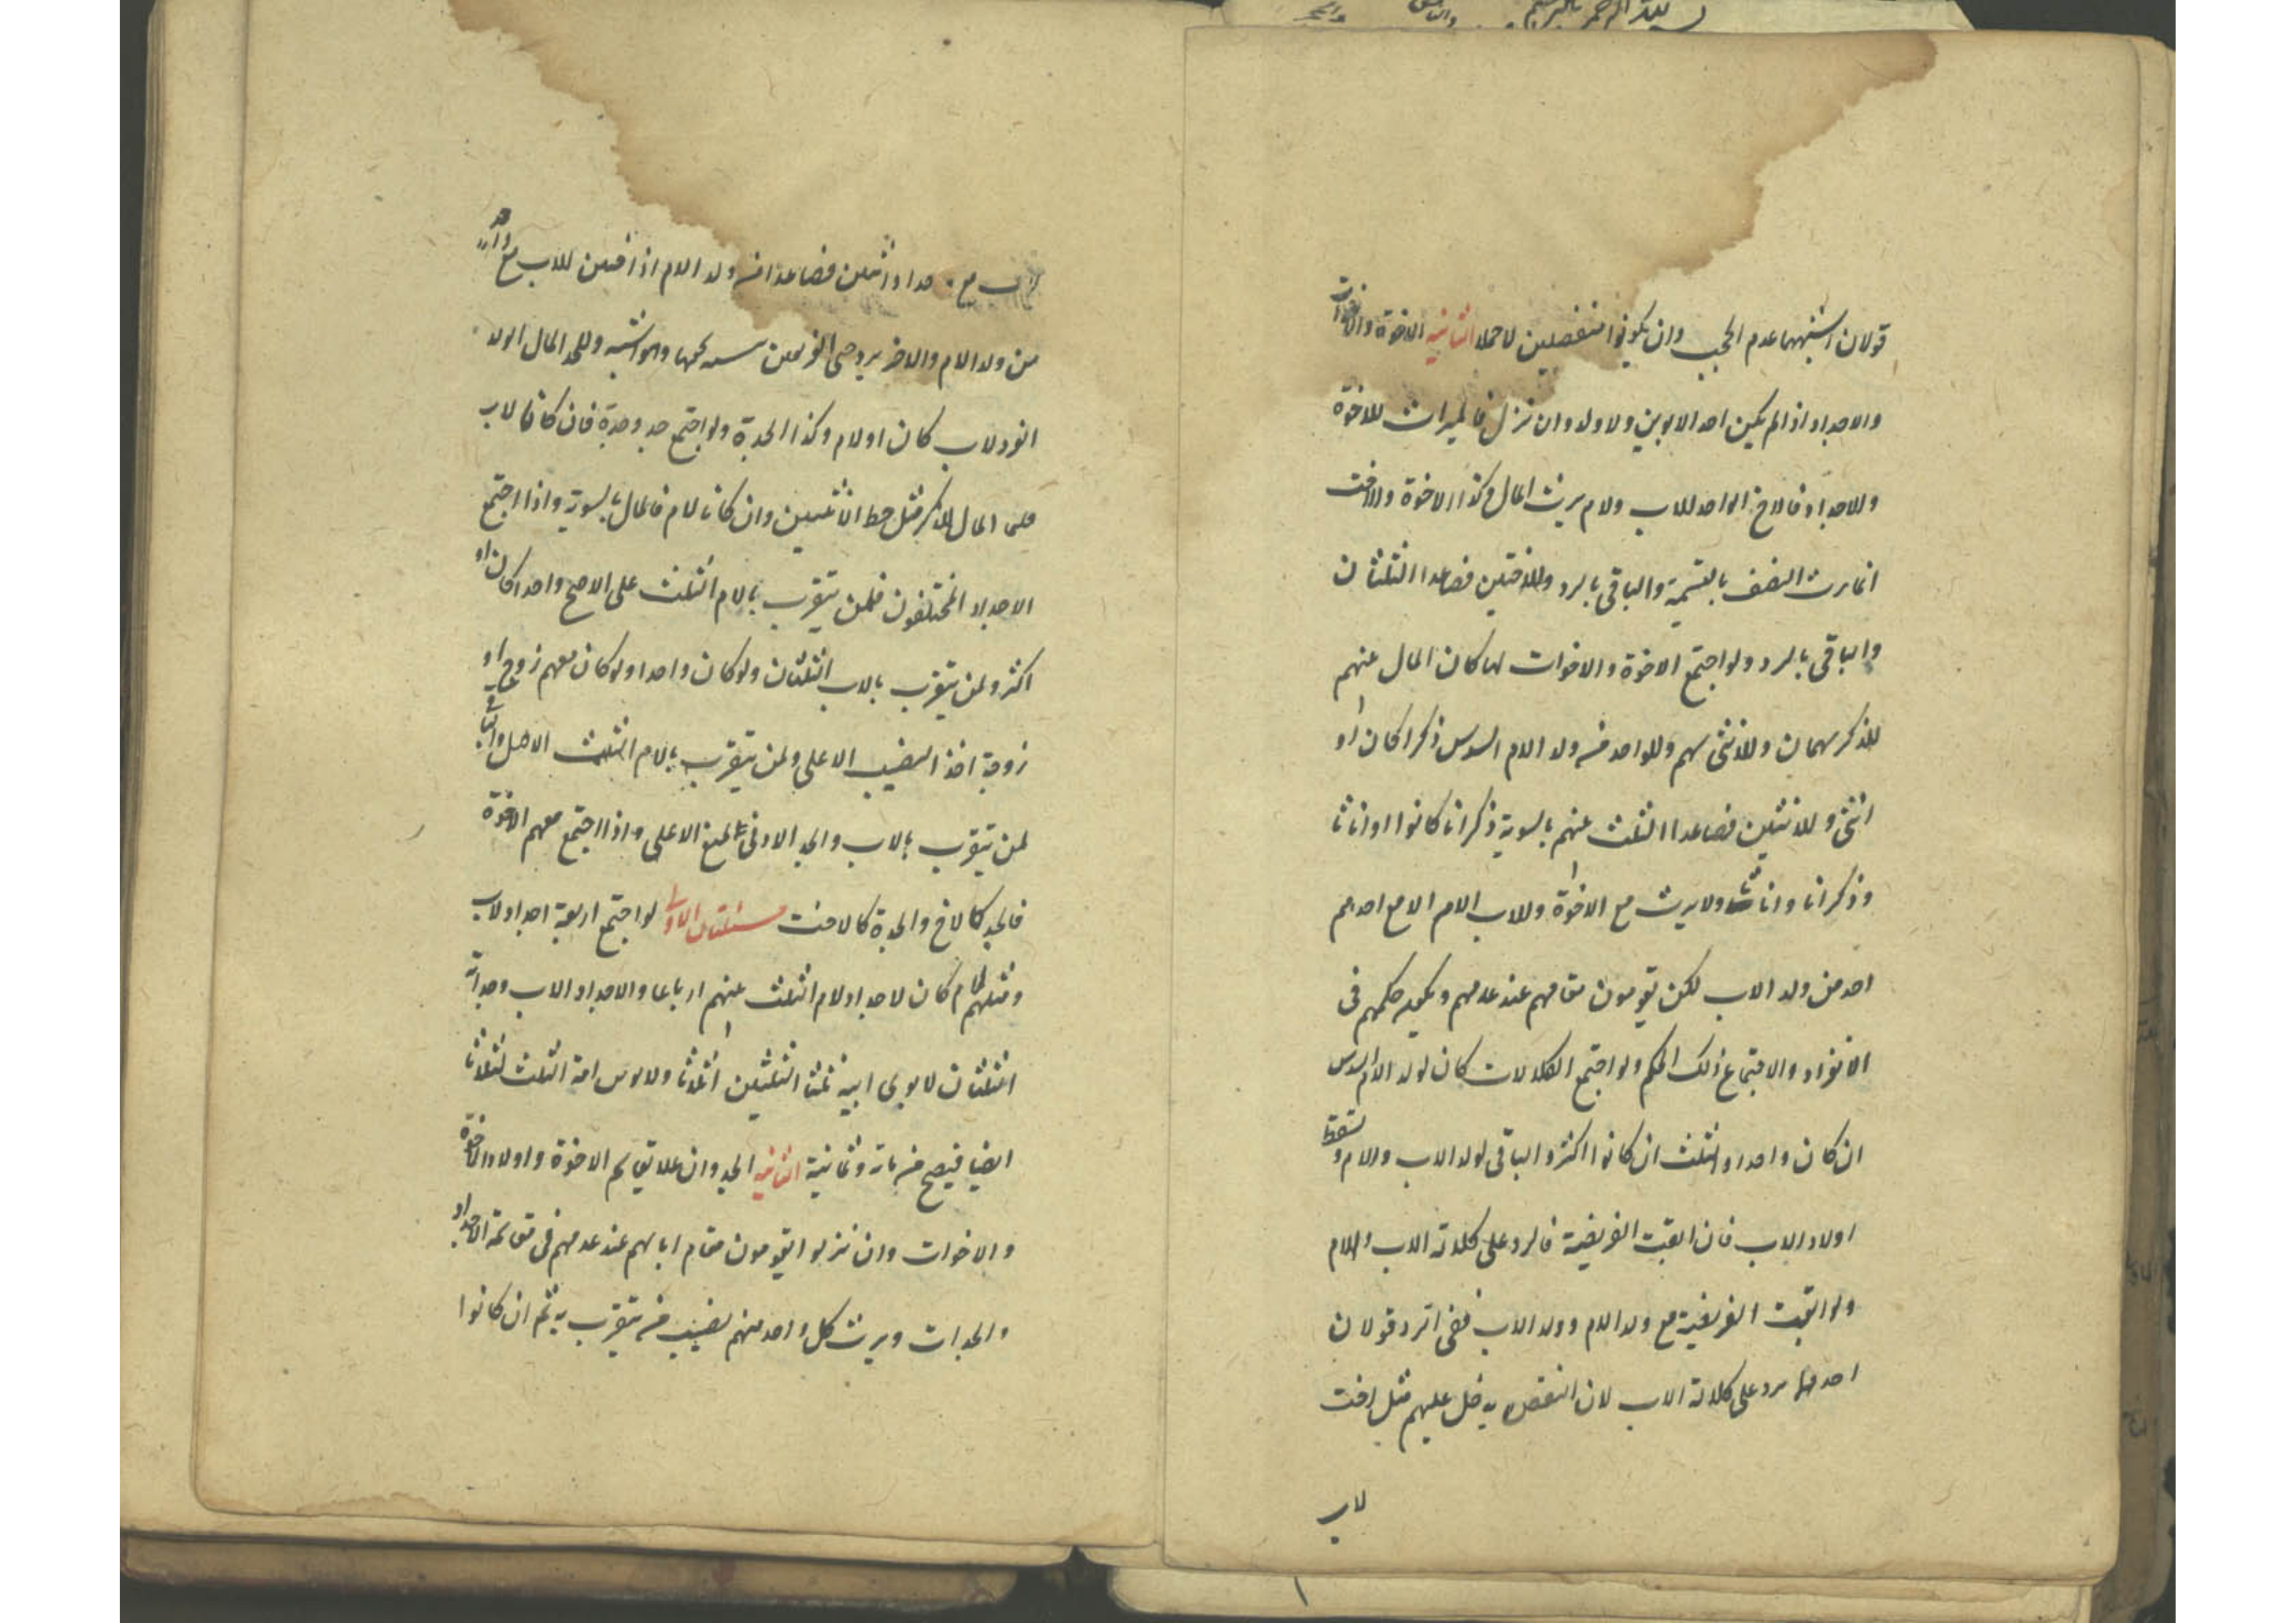 قولان اشبههما عدم الحجب وان يكونوا منفصلين لا حملا الثانية الاخوة والاخوات
والاجداد اذا لم يكن احد الابوين ولا ولد وان نزل فالميراث للاخوة
وللاجداد فالاخ الواحد للاب ولام يرث المال وكذا الاخوة والاخت
انما ترث النصف بالتسمية والباقى بالرد وللاختين فصاعدا الثلثان
والباقى بالرد ولو اجتمع الاخوة والاخوات لها كان المال عنهم
للذكر سهمان وللانثى سهم وللواحد من ولد الام السدس ذكرا كان او
انثى وللاثنين فصاعدا الثلث عنهم بالسوية ذكرانا كانوا او اناثا
وذكرانا واناثا ولا يرث مع الاخوة وللاب الام الا مع احدهم
احد من ولد الاب لكن يقومون مقامهم عند عدمهم ويكون حكمهم فى
الانفراد والاجتماع ذلك الحكم ولو اجتمع الكلالات كان لولد الام السدس
ان كان واحدا والثلث ان كانوا اكثر والباقى لولد الاب والام وسقط
اولاد الاب فان ابقت الفريضة فالرد على كلالة الاب والام
ولو ابقت الفريضة مع ولد الام وولد الاب ففى الرد قولان
احدهما يرد على كلالة الاب لان النقص يدخل عليهم مثل اخت
لاب
لاب مع واحد او اثنين فصاعدا من ولد الام او اختين للاب مع واحد
من ولد الام والاخر يرد على الفريقين بنسبة سهامها وهو اشبه وللجد المال اذا
انفرد لاب كان او لام وكذا الجدة ولو اجتمع جد وجدة فان كانا لاب
فلهما المال للذكر مثل حظ الانثيين وان كانا لام فالمال بالسوية واذا اجتمع
الاجداد المختلفون فلمن يتقرب بالام الثلث على الاصح واحدا كان او
اكثر ولمن يتقرب بالاب الثلثان ولو كان واحدا ولو كان معهم زوج او
زوجة اخذ النصيب الاعلى ولمن يتقرب بالام الثلث الاصل والباقى
لمن يتقرب بالاب والجد الادنى يمنع الاعلى واذا اجتمع معهم الاخوة
فالجد كالاخ والجدة كالاخت مسئلتان الاولى لو اجتمع اربعة اجداد لاب
ومثلهم لام كان لاجداد لام الثلث عنهم ارباعا ولاجداد الاب وجداته
الثلثان لابوى ابيه ثلثا الثلثين اثلاثا ولابوى امه الثلث اثلاثا
ايضا فيصح من مائة وثمانية الثانية الجد وان علا يقاسم الاخوة واولاد الاخوة
والاخوات وان نزلوا يقومون مقام ابائهم عند عدمهم فى مقاسمة الاجداد
والجدات ويرث كل واحد منهم نصيب من يتقرب به ثم ان كانوا